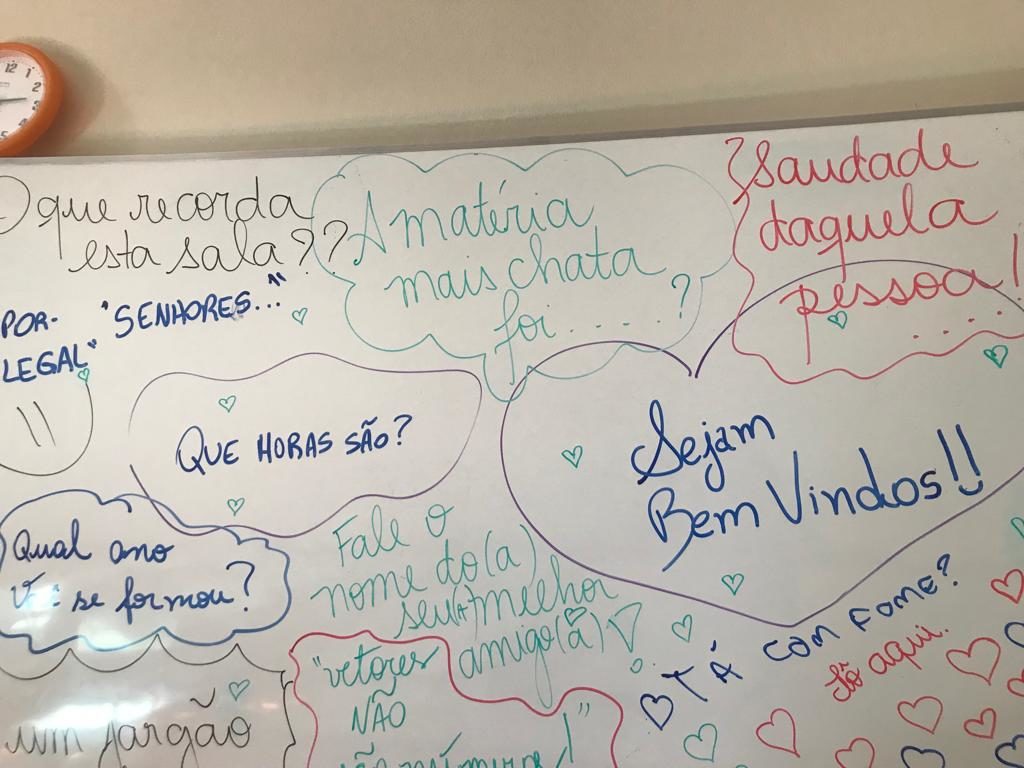 12
1
2
3
O que recorda
esta sala??
POR-
LEGAL"
"SENHORES..."
A matéria
mais chata
foi.....?
Saudade
daquela
pessoa!
....
QUE HORAS SÃO?
Sejam
Bem Vindos!!
Qual ano
se formou?
Fale o
nome do(a)
seu(a) melhor
amigo(a)
TÁ COM FOME?
tô aqui.
"vetores
NÃO
um jargão